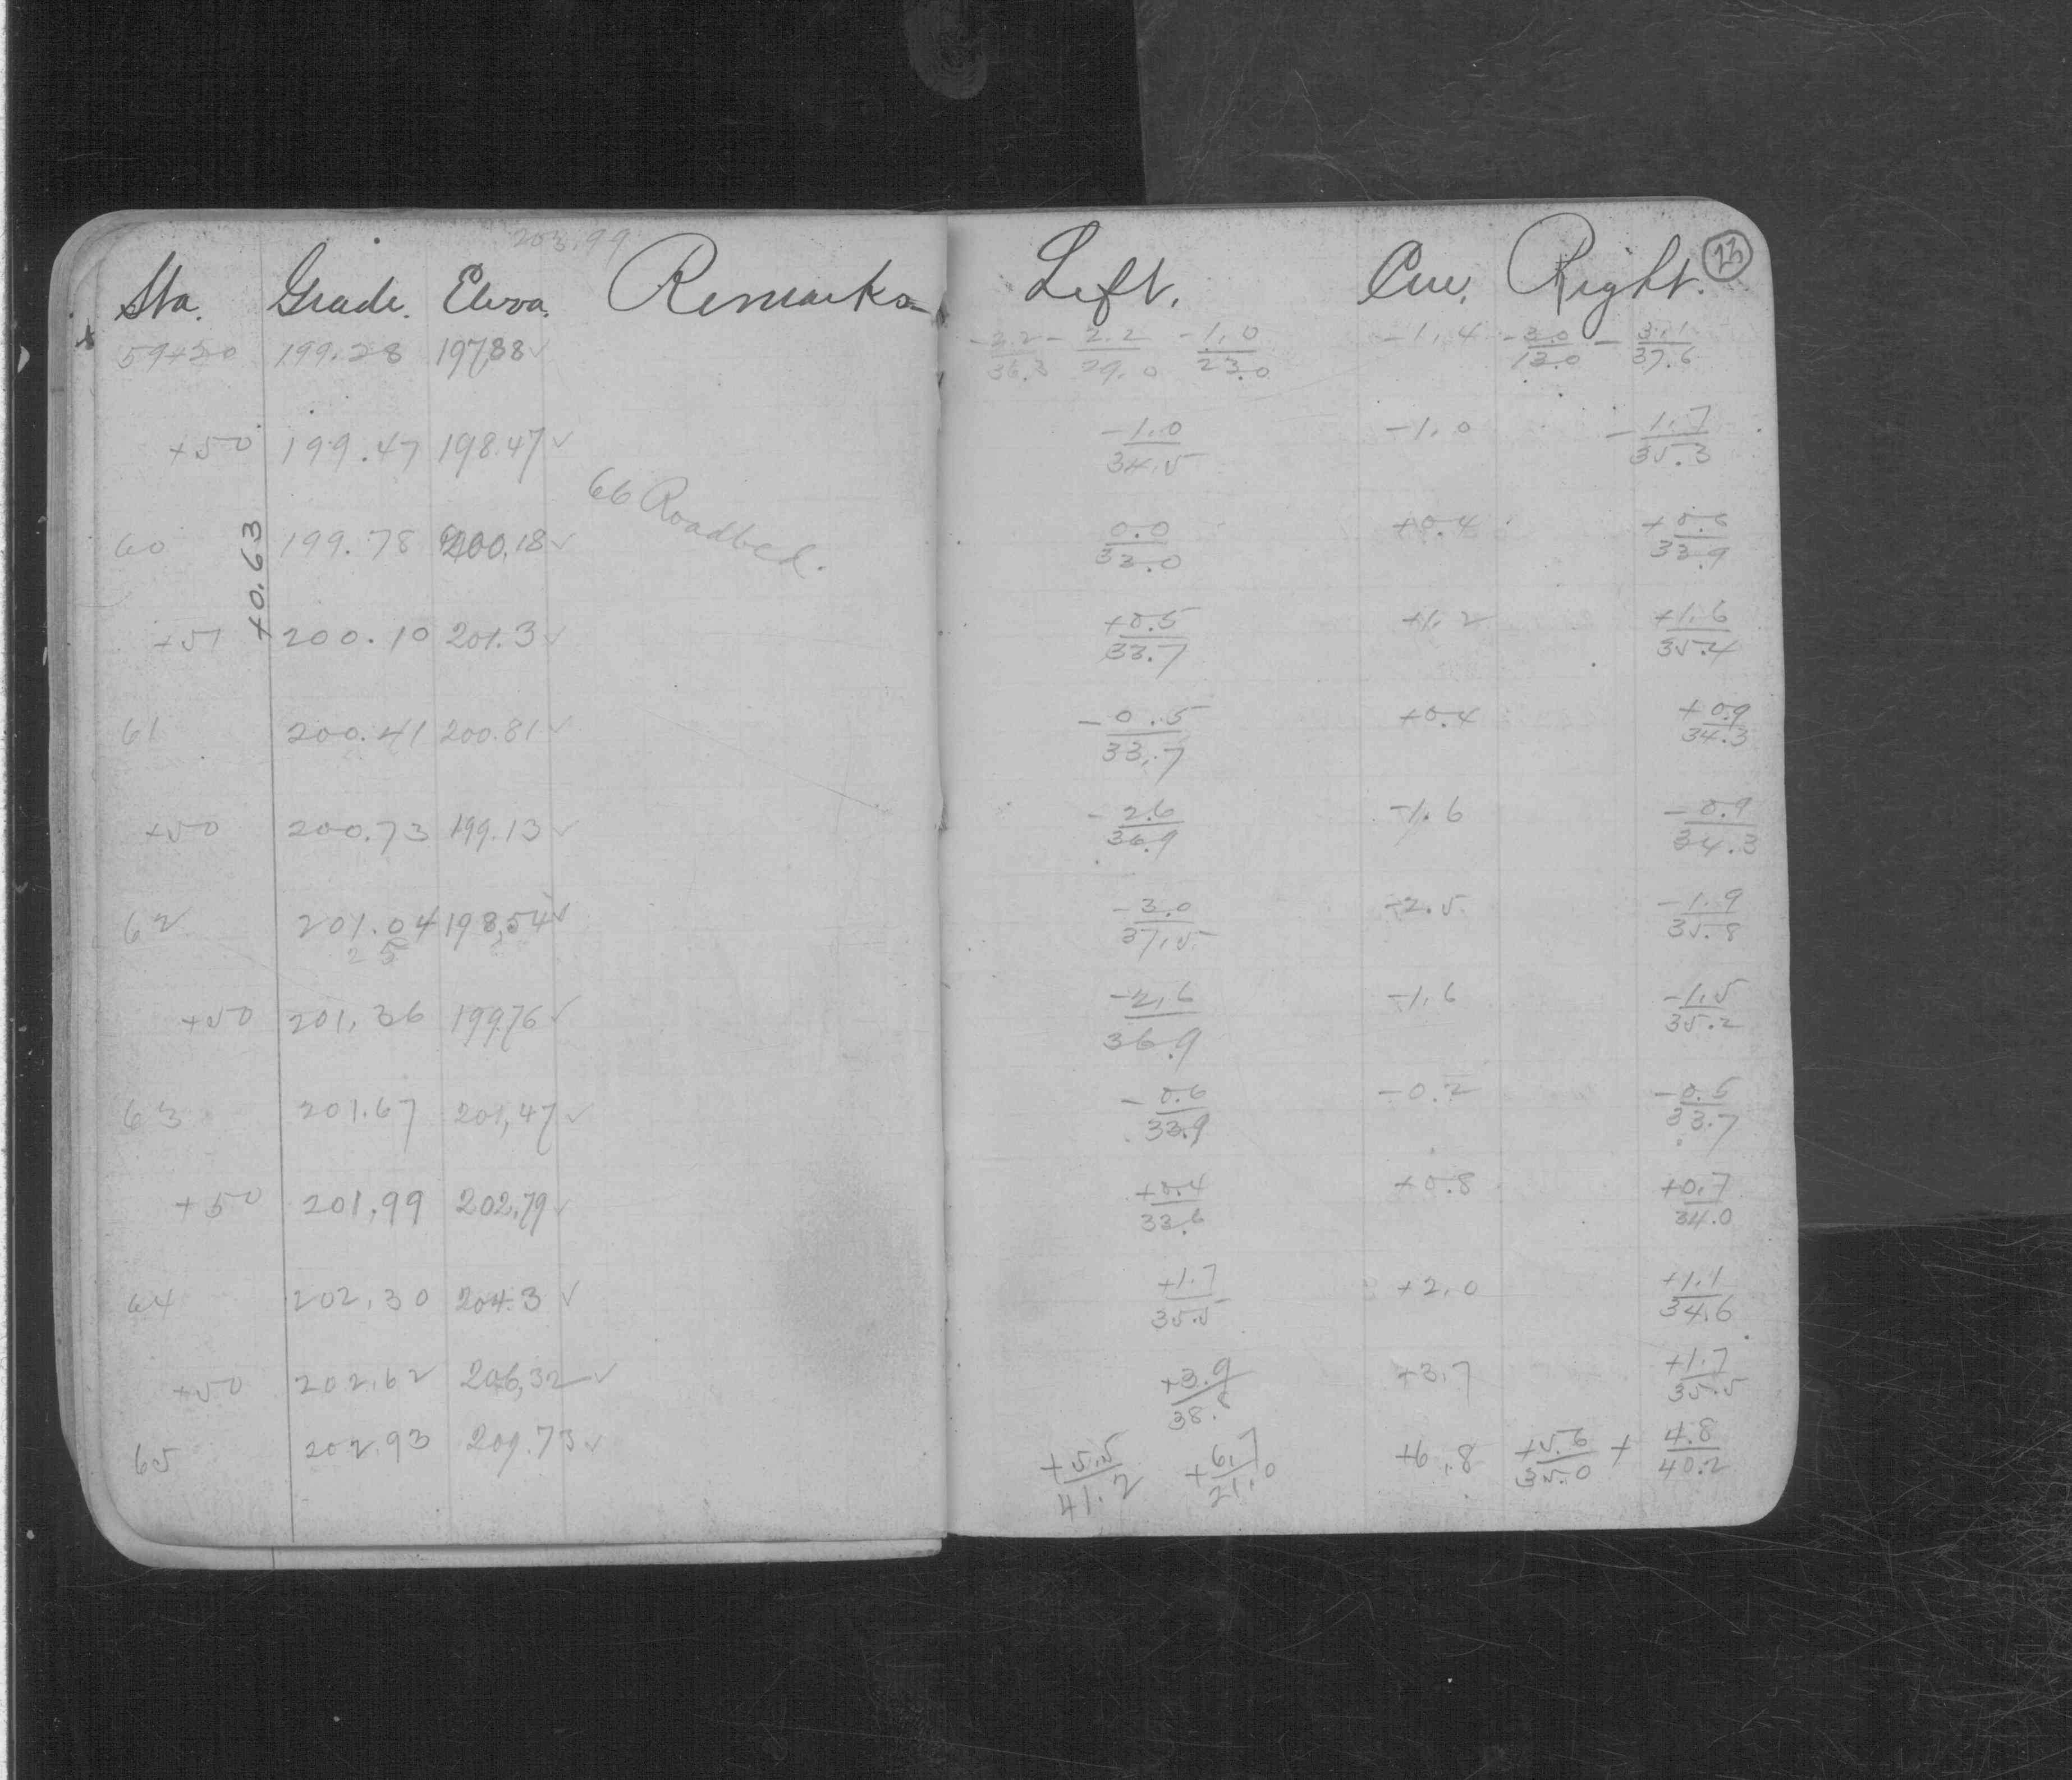 203.99
Sta. Grade. Eleva. Remarks Left. Cen. Right. 23
59+20 199.28 197.88 ✓ -3.2/36.3 -2.2/29.0 -1.0/23.0 -1.4 -3.0/13.0 -3.1/37.6
+50 199.47 198.47 ✓ -1.0/34.5 -1.0 -1.7/35.3
66 Roadbed.
+0.63
60 199.78 200.18 ✓ 0.0/33.0 +0.4 +0.6/33.9
+5 200.10 201.3 ✓ +0.5/33.7 +1.2 +1.6/35.4
61 200.41 200.81 ✓ -0.5/33.7 +0.4 +0.9/34.3
+50 200.73 199.13 ✓ -2.6/36.9 -1.6 -0.9/34.3
62 201.04 198.54 ✓ -3.0/37.5 -2.5 -1.9/35.8
25
+50 201.36 199.76 ✓ -2.6/36.9 -1.6 -1.5/35.2
63 201.67 201.47 ✓ -0.6/33.9 -0.2 -0.5/33.7
+50 201.99 202.79 ✓ +0.4/33.6 +0.8 +0.7/34.0
64 202.30 204.3 ✓ +1.7/35.5 +2.0 +1.1/34.6
+50 202.62 206.32 ✓ +3.9/38. +3.7 +1.7/35.5
65 202.93 209.73 ✓ +5.5/41.2 +6.7/21.0 +6.8 +5.6/35.0 +4.8/40.2